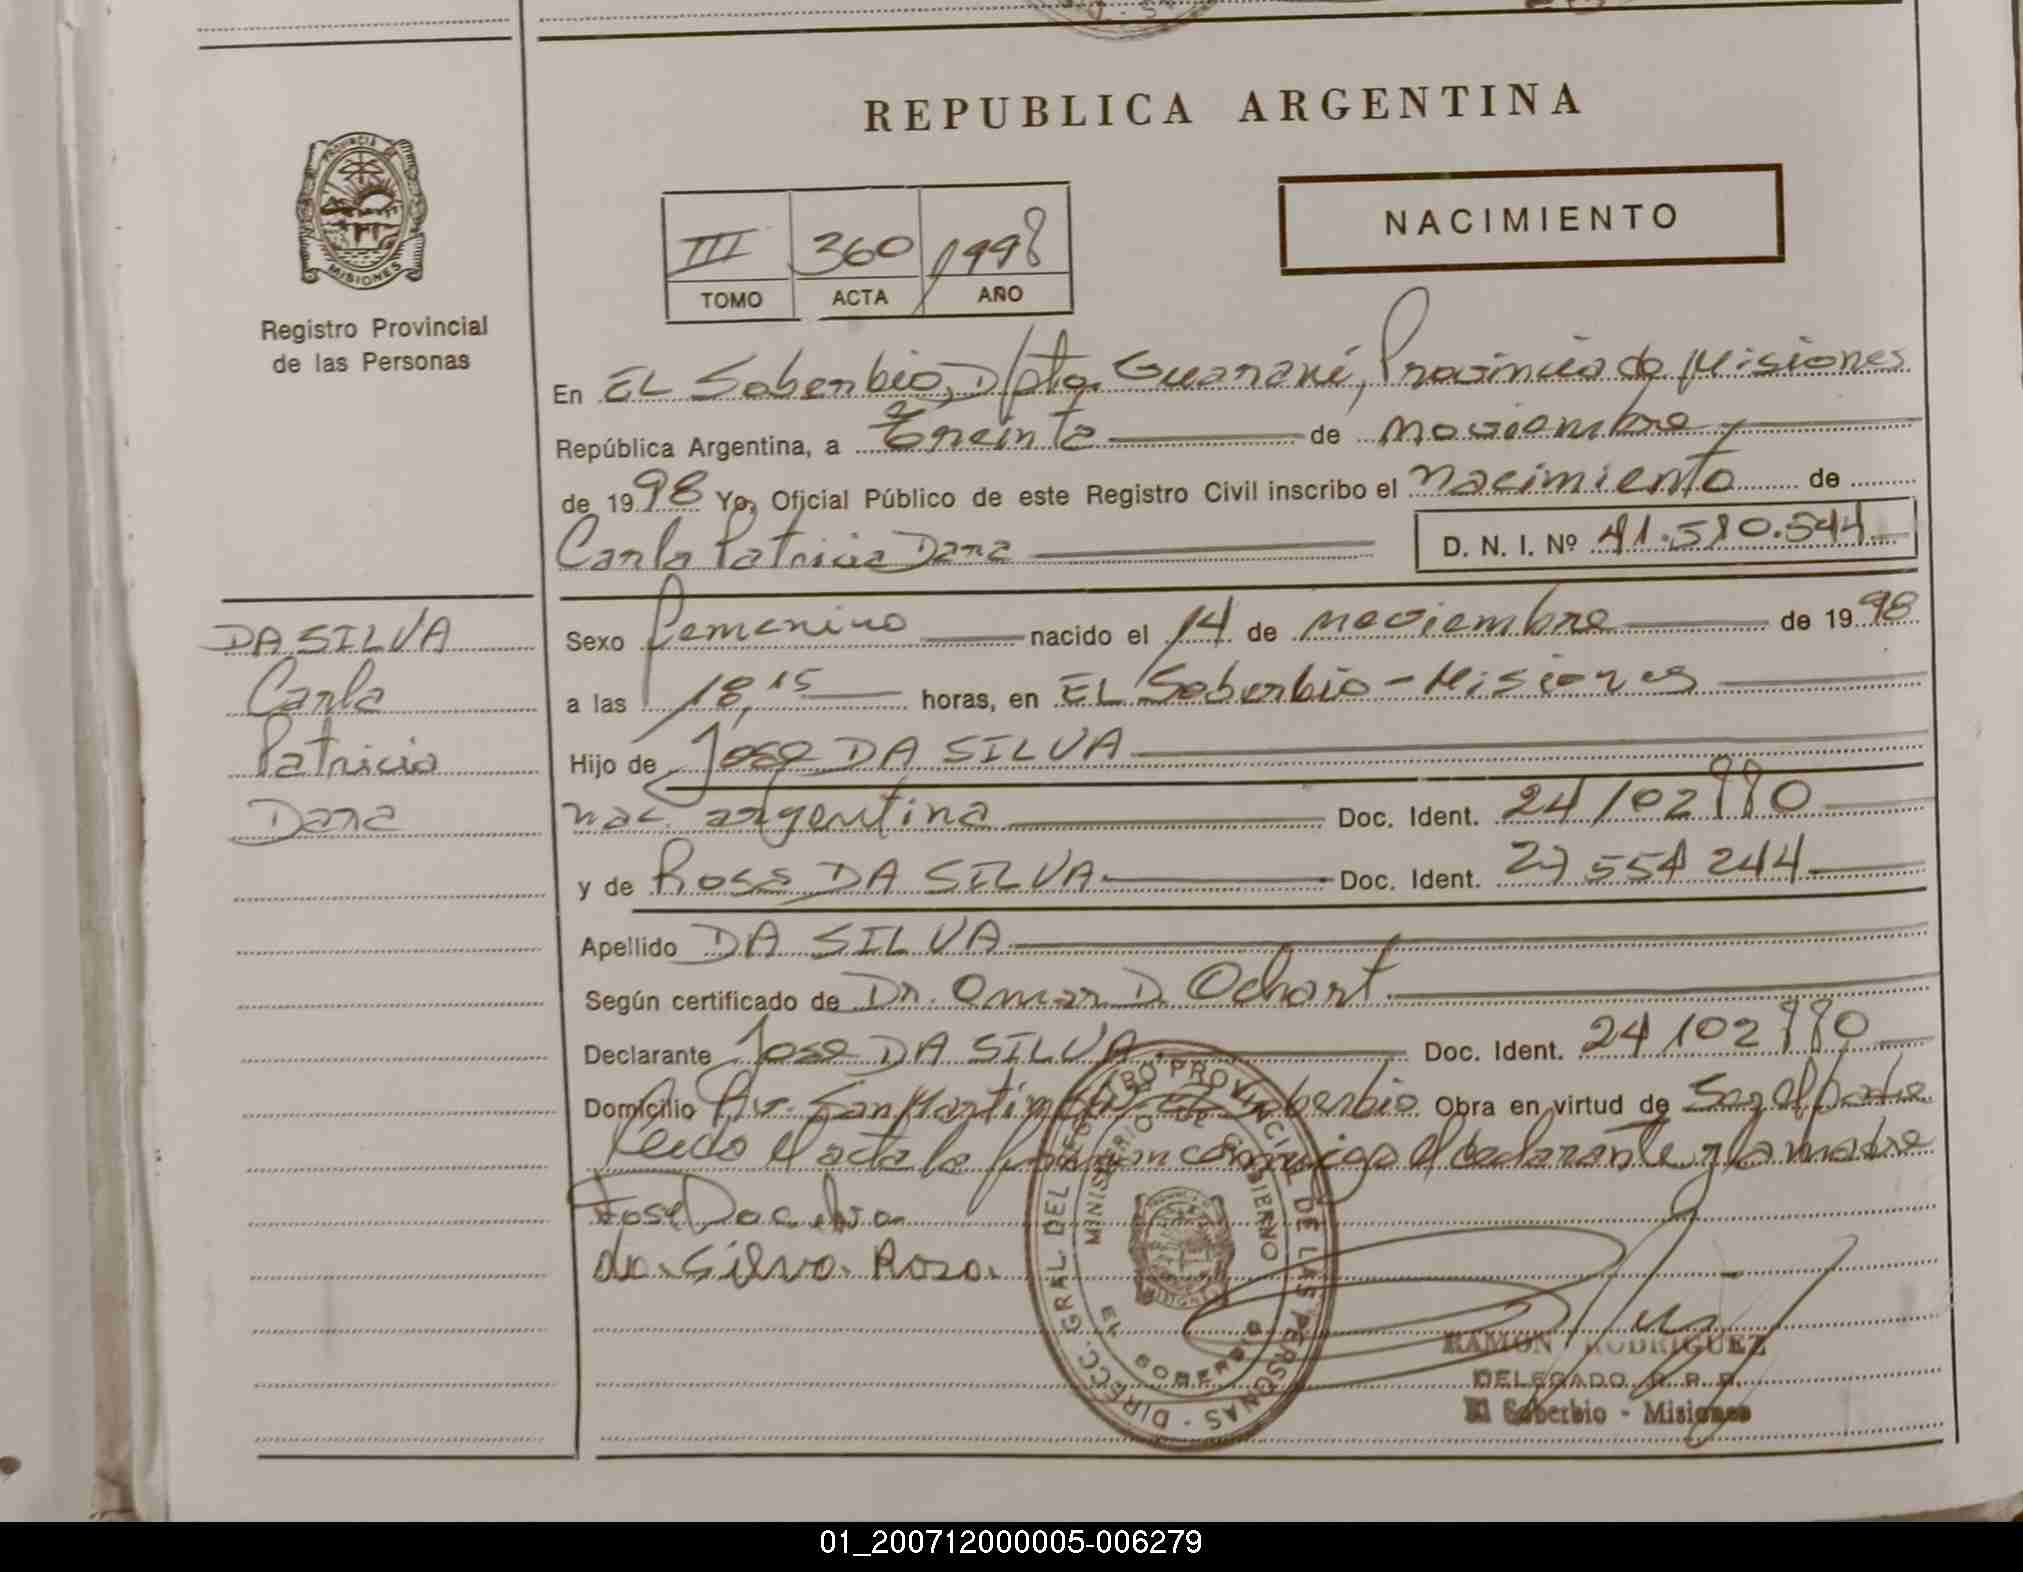 REPUBLICA ARGENTINA
NACIMIENTO
III 360 1998
TOMO ACTA AÑO
PROVINCIA
MISIONES
Registro Provincial
de las Personas
En EL Soberbio, Dpto. Guaraní, Provincia de Misiones
República Argentina, a Treinta de noviembre
de 1998 Yo, Oficial Público de este Registro Civil inscribo el nacimiento de
Carla Patricia Dana D. N. I. Nº 41.510.544
DA SILVA
Carla
Patricia
Dana
Sexo femenino nacido el 14 de noviembre de 1998
a las 18,15 horas, en EL Soberbio - Misiones
Hijo de Jose DA SILVA
nac. argentina Doc. Ident. 24/02990
y de Rosa DA SILVA Doc. Ident. 27554244
Apellido DA SILVA
Según certificado de Dr. Omar D. Ochart
Declarante Jose DA SILVA Doc. Ident. 24/02990
Domicilio Av. San Martin Soberbio Obra en virtud de Ser el padre
Leido el acta la firman conmigo el declarante y la madre
Jose Da silva
da silva Rosa
DIRECC. GRAL DEL REGISTRO PROVINCIAL DE LAS PERSONAS
MINISTERIO DE GOBIERNO
EL SOBERBIO
MISIONES
RAMON RODRIGUEZ
DELEGADO R. P. P.
El Soberbio - Misiones
01_200712000005-006279